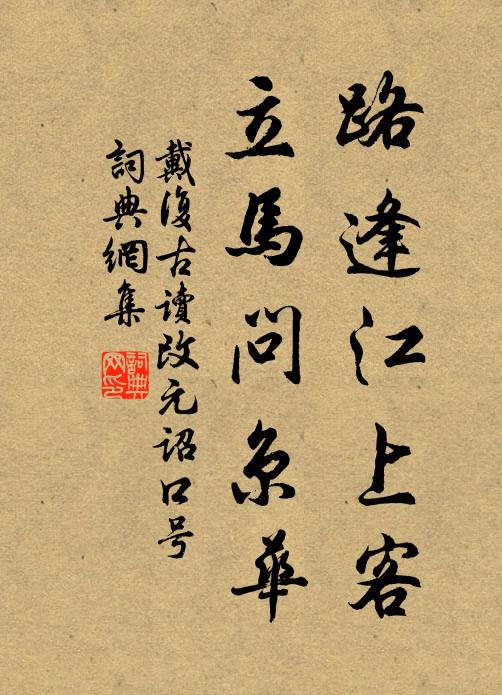 路逢江上客
立馬問京華
戴復古讀改元詔口号
詞典網集
詞典网印